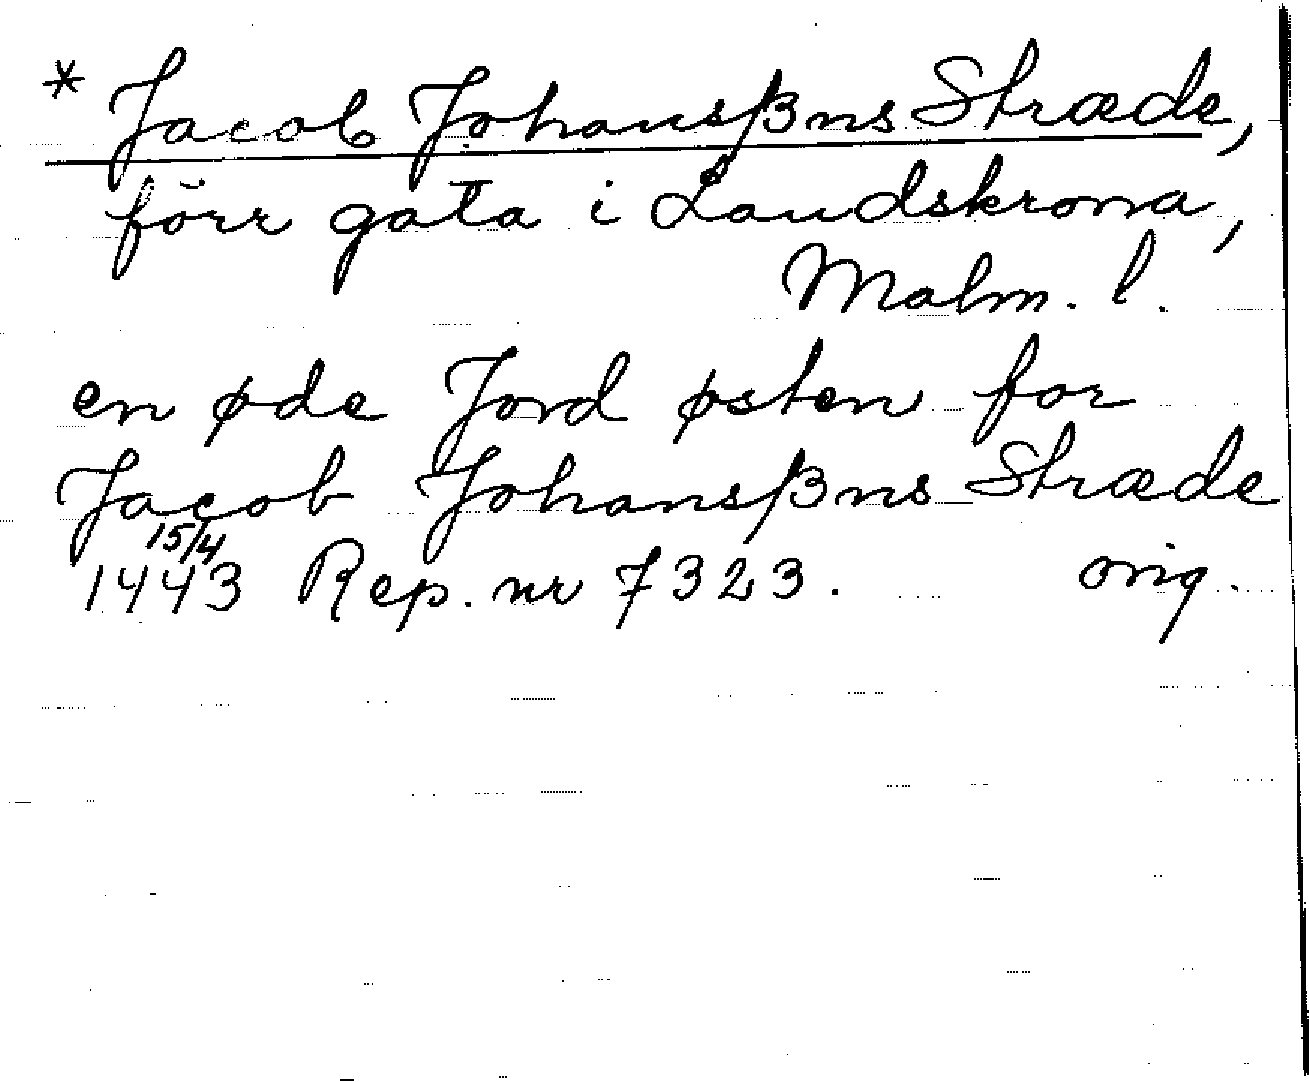 * Jacob Johansßns Stræde,
förr gata i Landskrona,
Malm. l.
en øde Jord østen for
Jacob Johansßns Stræde
15/4
1443 Rep. nr 7323. orig.